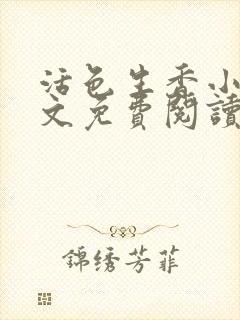 活色生香小
文免費閱讀
錦绣芳菲